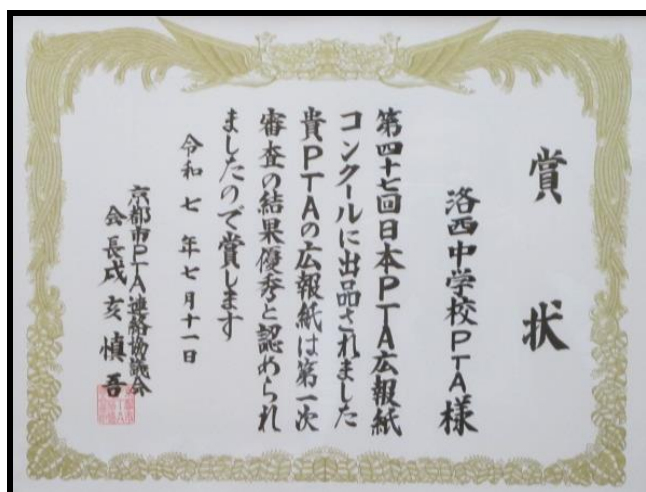 賞状
洛西中学校PTA様
第四十七回日本PTA広報紙
コンクールに出品されました
貴PTAの広報紙は第一次
審査の結果優秀と認められ
ましたので賞します
令和七年七月十一日
京都市PTA連絡協議会
会長 戌亥慎吾